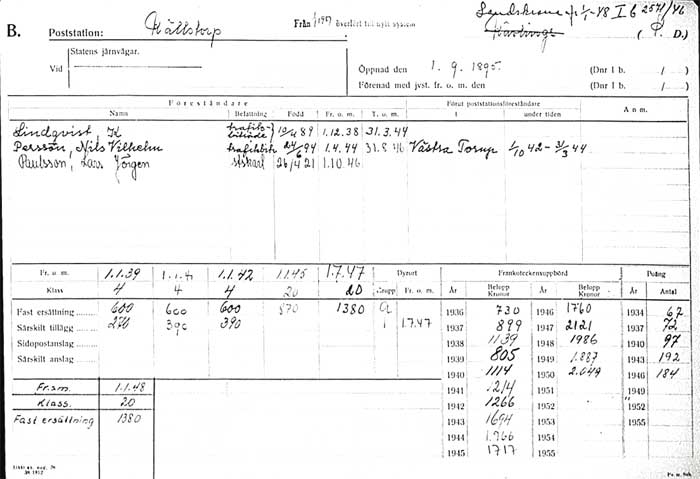 Landskrona 1/1-48 I 6 2541/46
B. Poststation: Källstorp Från 1/1 1947 överfört till nytt system
( P. D.)
Statens järnvägar.
Vid
Öppnad den 1. 9. 1895. (Dnr I b. / )
Förenad med jvst. fr. o. m. den (Dnr I b. / )
Föreståndare Förut poststationsföreståndare Anm.
Namn Befattning Född Fr. o. m. T. o. m. i under tiden
Lindqvist, K 1.12.38 31.3.44
Persson, Nils Vilhelm 24/6 94 1.4.44 31.8.46 Västra Torup 1/10 42 - 31/3 44
Paulsson, Lars Jörgen 26/4 21 1.10.46.
Fr. o. m. 1.1.39 1.1.41 1.1.42 1.1.45 1.7.47 Dyrort Frankoteckensuppbörd Poäng
Klass 4 4 4 20 20 Grupp Fr. o. m. År Belopp Kronor År Belopp Kronor År Antal
Fast ersättning 600 600 600 870 1380 1936 730 1946 1760 1934 67
Särskilt tillägg 270 390 390 1 1.7.47 1937 899 1947 2121 1937 72
Sidopostanslag 1938 1139 1948 1986 1940 97
Särskilt anslag 1939 805 1949 1.887 1943 192
1940 1114 1950 2.049 1946 184
Fr.o.m. 1.1.48 1941 1214 1951 1949
Klass. 20 1942 1266 1952 1952
Fast ersättning 1380 1943 1694 1953 1955
1944 1.766 1954
1945 1717 1955